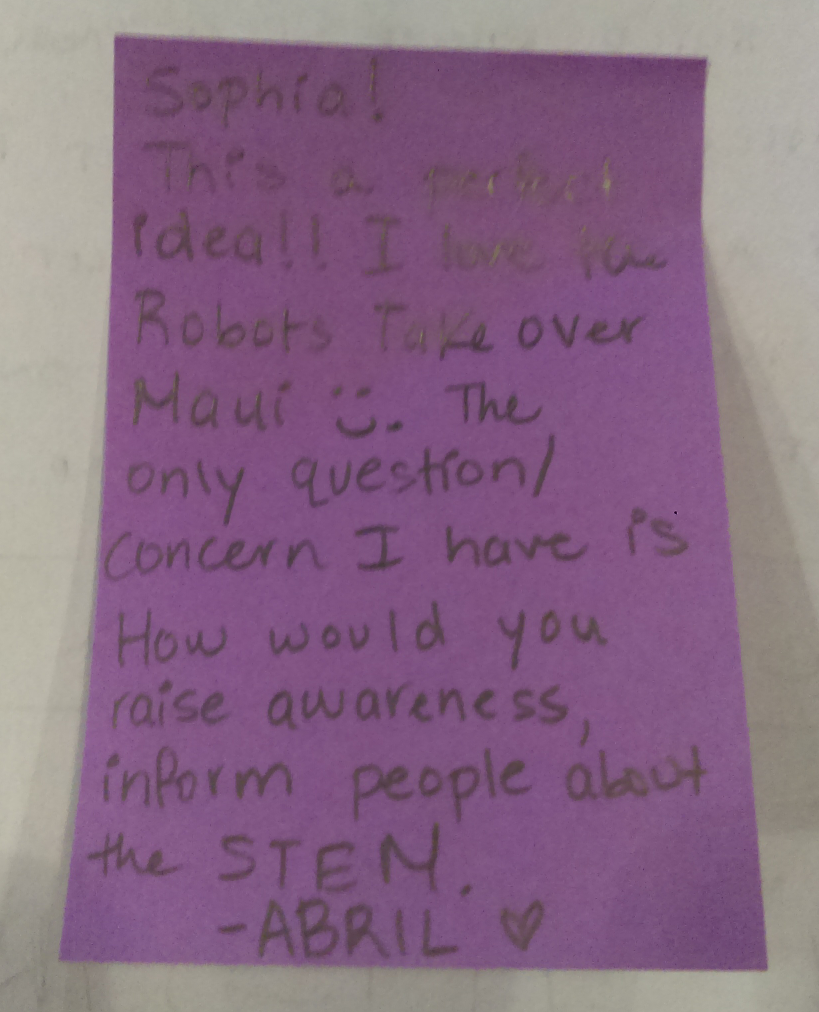 Sophia!
This a perfect
idea!! I love the
Robots Take over
Maui ☺. The
only question/
concern I have is
How would you
raise awareness,
inform people about
the STEM.
-ABRIL ♡